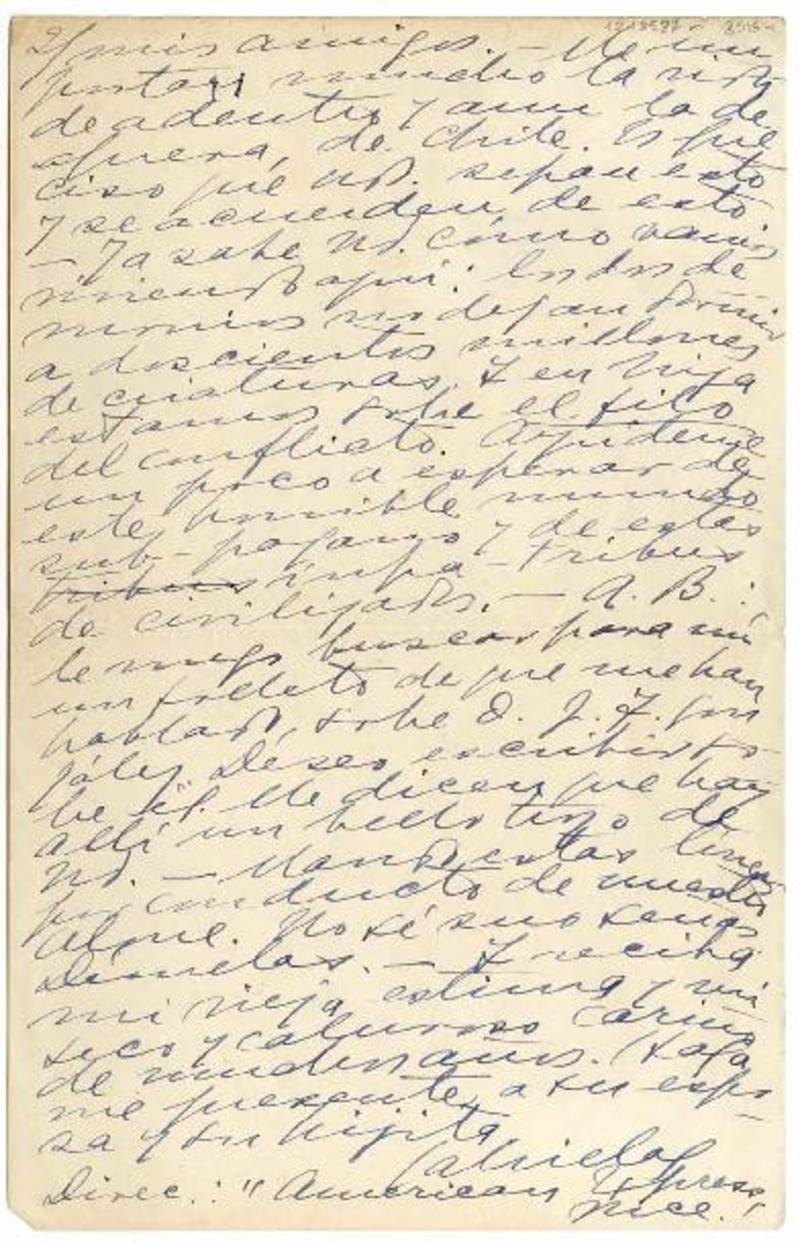 y mis amigos. — Me im
porta mucho la vida
de adentro y aun la de
afuera, de Chile. Es pre
ciso que Ud. sepan esto
y se acuerden, de esto
— Ya sabe Ud. cómo vamos
viviendo aquí: los dos de
monios no dejan dormir
a doscientos millones
de criaturas. Y en Niza
estamos sobre el filo
del conflicto. Ayúdeme
un poco a esperar de
este horrible mundo
sub-pagano y de estas
tribus infra-tribus
de civilizados. — A. B.:
le ruego buscar para mí
un folleto de que me han
hablado, sobre D. J. F. Gon
zález. Deseo escribir so
bre él. Me dicen que hay
allí un bello trozo de
Ud. — Mando estas líneas
por conducto de nuestro
Alone. No sé sus señas
Démelas. — Y reciba
mi vieja estima y mi
seco y caluroso cariño
de muchos años. Haga
me presente a su espo-
sa y su hijita
Gabriela
Direc.: "American Express"
Nice.